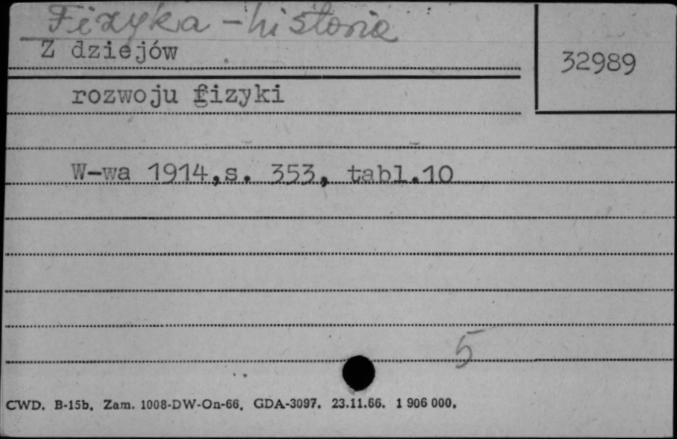 Fizyka - historia
Z dziejów
32989
rozwoju fizyki
W-wa 1914,s. 353, tabl.10
5
CWD. B-15b. Zam. 1008-DW-On-66. GDA-3097. 23.11.66. 1 906 000.